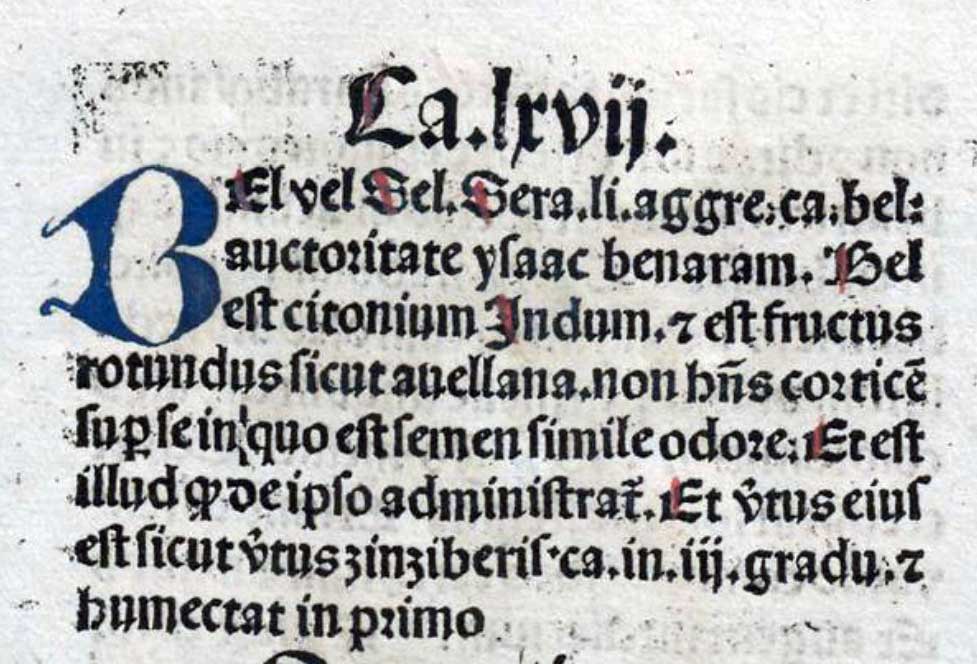 Ca.lxvij.
BEl vel Sel. Sera.li.aggre.ca.bel:
auctoritate ysaac benaram. Bel
est citonium Indum. ⁊ est fructus
rotundus sicut auellana. non hñs corticē
suꝑ se in quo est semen simile odore: Et est
illud ꝙ de ipso administrat̄. Et v̓tus eius
est sicut v̓tus zinziberis·ca.in.iij.gradu.⁊
humectat in primo